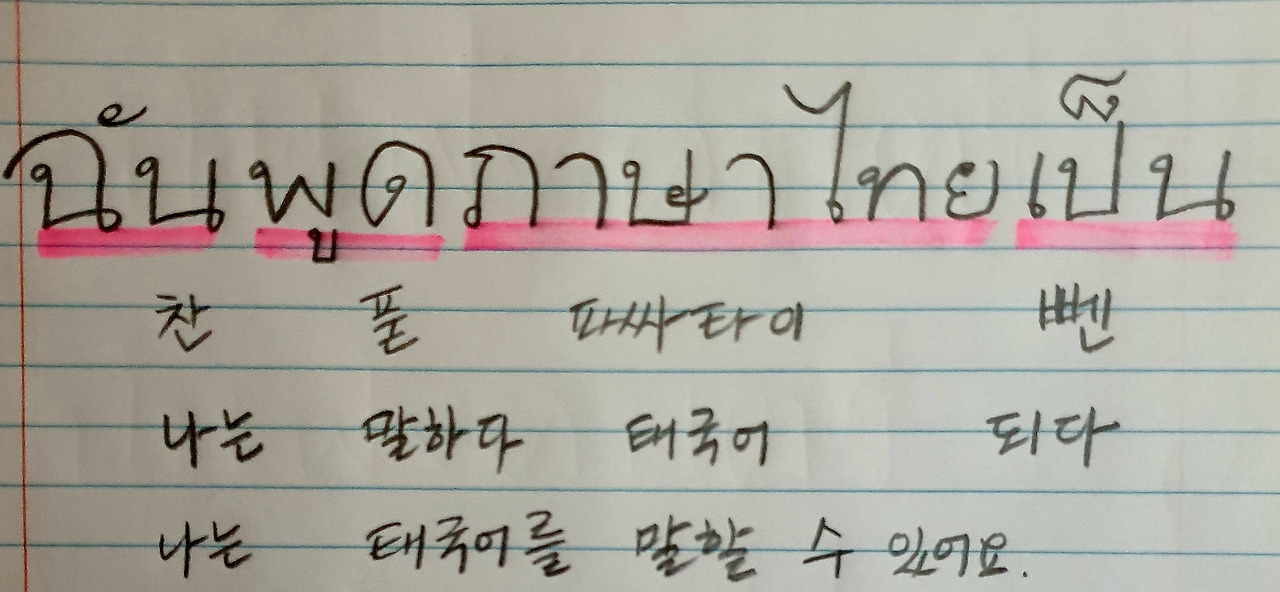 ฉันพูดภาษาไทยเป็น
찬 푿 파싸타이 뻰
나는 말하다 태국어 되다
나는 태국어를 말할 수 있어요.